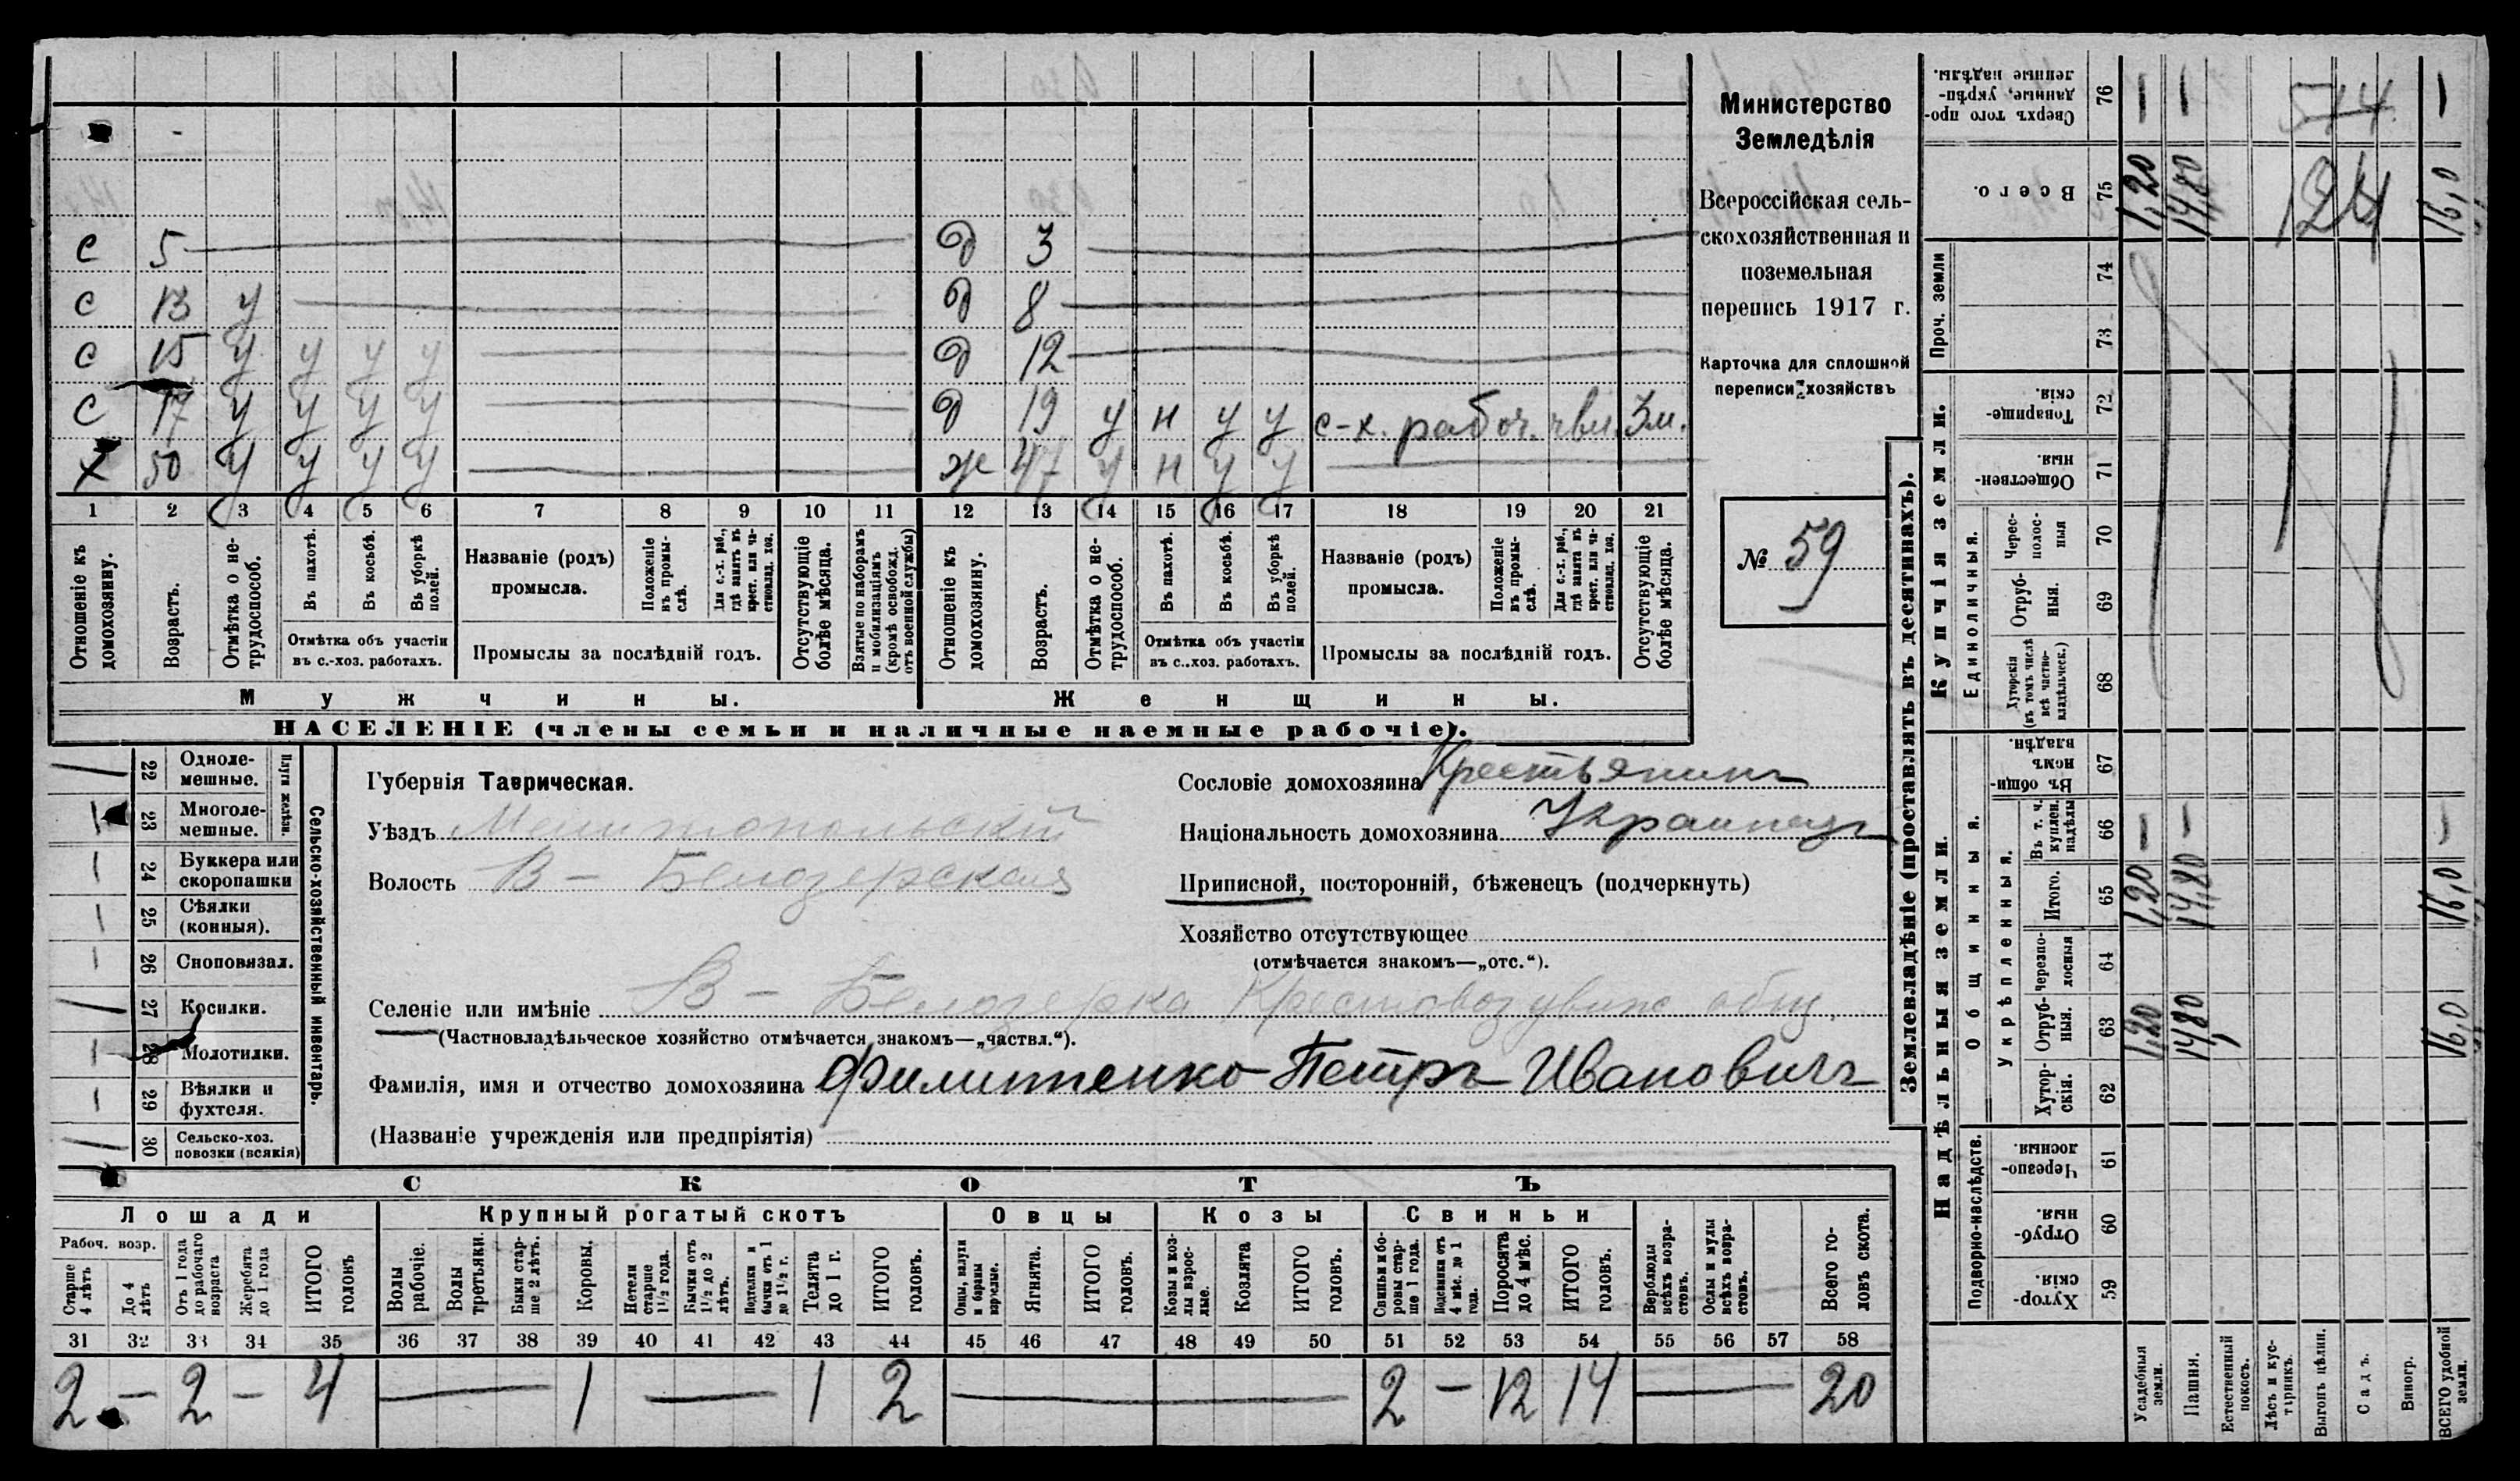 с 5 д 3
с 13 у д 8
с 15 у у у у д 12
с 17 у у у у д 19 у н у у с-х. рабоч. 3 м.
х 50 у у у у ж 47 у н у у
1 2 3 4 5 6 7 8 9 10 11 12 13 14 15 16 17 18 19 20 21
Отношеніе къ домохозяину.
Возрастъ.
Отмѣтка о не-
трудоспособ.
Въ пахотѣ.
Въ косьбѣ.
Въ уборкѣ полей.
Отмѣтка объ участіи
въ с.-хоз. работахъ.
Названіе (родъ)
промысла.
Положеніе въ промы-
слѣ.
Для с.-х. раб., гдѣ занятъ въ крест. или ча-
стновлад. хоз.
Промыслы за послѣдній годъ.
Отсутствующіе болѣе мѣсяца.
Взятые по наборамъ и мобилизаціямъ (кромѣ освобожд. отъ военной службы)
Отношеніе къ домохозяину.
Возрастъ.
Отмѣтка о не-
трудоспособ.
Въ пахотѣ.
Въ косьбѣ.
Въ уборкѣ полей.
Отмѣтка объ участіи
въ с..хоз. работахъ.
Названіе (родъ)
промысла.
Положеніе въ промы-
слѣ.
Для с.-х. раб., гдѣ занятъ въ крест. или ча-
стновлад. хоз.
Промыслы за послѣдній годъ.
Отсутствующіе болѣе мѣсяца.
Мужчины. Женщины.
НАСЕЛЕНІЕ (члены семьи и наличные наемные рабочіе).
Министерство
Земледѣлія
Всероссійская сель-
скохозяйственная и
поземельная
перепись 1917 г.
Карточка для сплошной
переписи хозяйствъ
№ 59
22 Одноле-
мешные.
23 Многоле-
мешные.
Плуги желѣзн.
24 Буккера или
скоропашки
25 Сѣялки
(конныя).
26 Сноповязал.
27 Косилки.
28 Молотилки.
29 Вѣялки и
фухтеля.
30 Сельско-хоз.
повозки (всякія)
Сельско-хозяйственный инвентарь.
Губернія Таврическая.
Уѣздъ Мелитопольскій
Волость В - Белозерская
Селеніе или имѣніе В - Белозерка Крестовоздвиж общ.
(Частновладѣльческое хозяйство отмѣчается знакомъ—„частвл.“).
Фамилія, имя и отчество домохозяина Филипенко Петръ Ивановичъ
(Названіе учрежденія или предпріятія)
Сословіе домохозяина Крестьянинъ
Національность домохозяина Украинецъ
Приписной, посторонній, бѣженецъ (подчеркнуть)
Хозяйство отсутствующее
(отмѣчается знакомъ—„отс.“).
СКОТЪ
Лошади
Крупный рогатый скотъ
Овцы
Козы
Свиньи
Рабоч. возр.
Старше 4 лѣтъ
До 4 лѣтъ
Отъ 1 года до рабочаго возраста
Жеребята до 1 года
ИТОГО головъ
Волы рабочіе.
Волы третьяки.
Быки стар-
ше 2 лѣтъ.
Коровы.
Нетели старше 1½ года.
Бычки отъ 1½ до 2 лѣтъ.
Подтелки и бычки отъ 1 до 1½ г.
Телята до 1 г.
ИТОГО головъ.
Овцы, валухи и бараны взрослые.
Ягнята.
ИТОГО головъ.
Козы и коз-
лы взрос-
лые.
Козлята
ИТОГО головъ.
Свиньи и бо-
ровы стар-
ше 1 года.
Подсвинки отъ 4 мѣс. до 1 года.
Поросята до 4 мѣс.
ИТОГО головъ.
Верблюды всѣхъ возра-
стовъ.
Ослы и мулы всѣхъ возра-
стовъ.
Всего го-
ловъ скота.
31 32 33 34 35 36 37 38 39 40 41 42 43 44 45 46 47 48 49 50 51 52 53 54 55 56 57 58
2 - 2 - 4 1 1 2 2 - 12 14 20
Землевладѣніе (проставлять въ десятинахъ).
Купчія земли.
Надѣльныя земли.
Сверхъ того про-
данные, укрѣп-
ленные надѣлы. 76 — — 544 —
Всего. 75 1,20 14,80 124 16,0
Проч. земли
74
73
Товарище-
скія. 72
Обществен-
ныя. 71
Единоличныя.
Черес-
полос-
ныя 70
Отруб-
ныя. 69
Хуторскія (въ томъ числѣ всѣ частно-
владѣльческ.) 68
Общинныя.
Укрѣпленныя.
Въ общин-
номъ владѣн. 67
Въ т. ч. куплен. надѣлы 66 — — —
Итого. 65 1,20 14,80 16,0
Черезпо-
лосныя 64
Отруб-
ныя. 63 1,20 14,80 16,0
Хутор-
скія. 62
Подворно-наслѣдств.
Черезпо-
лосныя. 61
Отруб-
ныя. 60
Хутор-
скія. 59
Усадебныя земли.
Пашня.
Естественный покосъ.
Лѣсъ и кус-
тарникъ.
Выгонъ цѣлин.
Садъ.
Виногр.
ВСЕГО удобной земли.